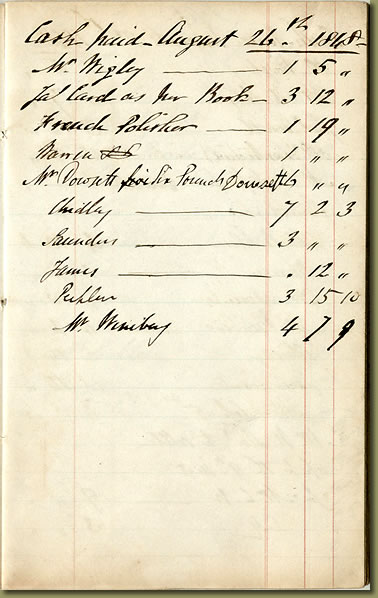 Cash paid - August 26th 1848
Mr Wigley — 1 5 "
Jas Card as per Book - 3 12 "
French Polisher — 1 19 "
Warren 1 " "
Mr Dowsett Six Pounds Dowsett 6 " "
Chidley — 7 2 3
Saunders — 3 " "
James — . 12 "
3 15 10
Mr 4 7 9